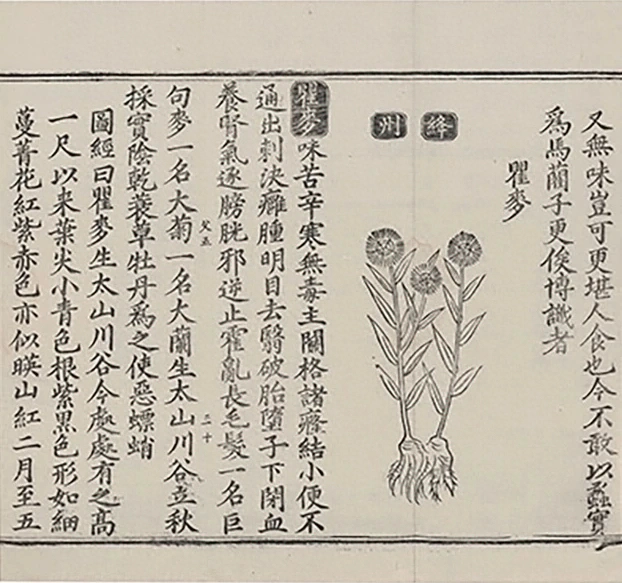 又無味豈可更堪人食也今不敢以蠡實
爲馬藺子更俟博識者
瞿麥
絳州
瞿麥味苦辛寒無毒主關格諸癃結小便不
通出刺決癰腫明目去翳破胎墮子下閉血
養腎氣逐膀胱邪逆止霍亂長毛髮一名巨
句麥一名大菊一名大蘭生太山川谷立秋
採實陰乾蓑草牡丹爲之使惡螵蛸
圖經曰瞿麥生太山川谷今處處有之髙
一尺以来葉尖小青色根紫黑色形如細
蔓菁花紅紫赤色亦似暎山紅二月至五